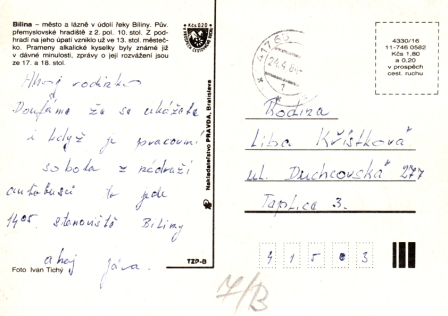 Bílina – město a lázně v údolí řeky Bíliny. Pův.
přemyslovské hradiště z 2. pol. 10. stol. Z pod-
hradí na jeho úpatí vzniklo už ve 13. st. městeč-
ko. Prameny alkalické kyselky byly známé již
v dávné minulosti, zprávy o její rozvážení jsou
ze 17. a 18. stol.
Kčs 0,20
Ahoj rodinko
Doufáme že se ukážete
i když je pracovní
sobota z nádraží
autobusů to jede
14⁰⁵ stanoviště Bíliny
ahoj Jára.
Foto Ivan Tichý
Nakladatelstvo PRAVDA, Bratislava
TZP-B
24.4.84
4330/16
11-746 0582
Kčs 1,80
a 0,20
v prospěch
cest. ruchu
Rodina
Liba Křístková
ul. Duchcovská 277
Teplice 3.
4 1 5 0 3
7/B